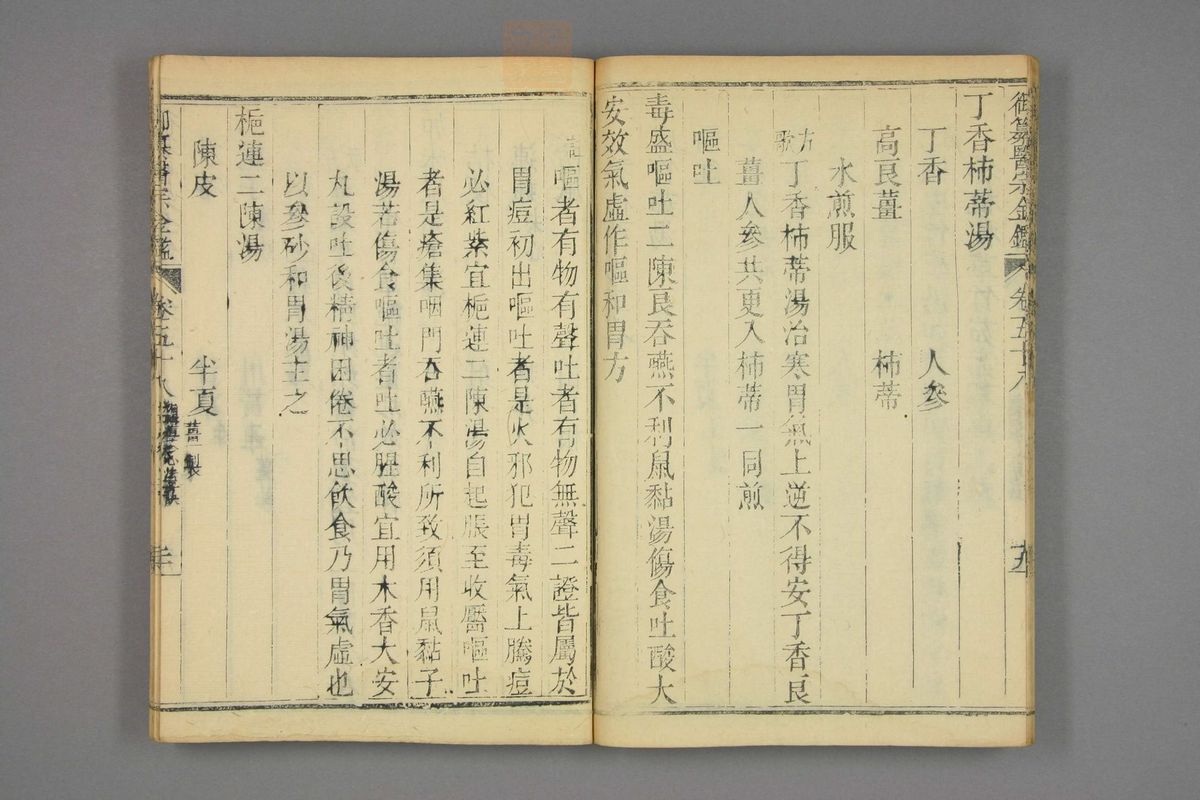 御纂醫宗金鑑 卷五十八
丁香柿蒂湯
丁香 人參
高良薑 柿蒂
水煎服
方歌 丁香柿蒂湯治寒胃氣上逆不得安丁香良
薑人參共更入柿蒂一同煎
嘔吐
毒盛嘔吐二陳良吞嚥不利鼠黏湯傷食吐酸大
安效氣虛作嘔和胃方
註 嘔者有物有聲吐者有物無聲二證皆屬於
胃痘初出嘔吐者是火邪犯胃毒氣上騰痘
必紅紫宜梔連二陳湯自起脹至收靨嘔吐
者是瘡集咽門吞嚥不利所致須用鼠黏子
湯若傷食嘔吐者吐必腥酸宜用木香大安
丸設吐後精神困倦不思飲食乃胃氣虛也
以參砂和胃湯主之
梔連二陳湯
陳皮 半夏 薑製
御纂醫宗金鑑 卷五十八